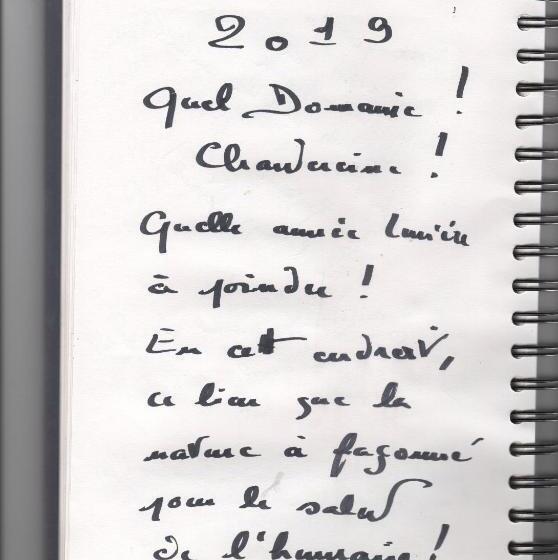 2019
Quel Domaine !
Chantereine !
Quelle année lumière
à poindre !
En cet endroit,
ce lieu que la
nature à façonné
pour le salut
de l'humain !